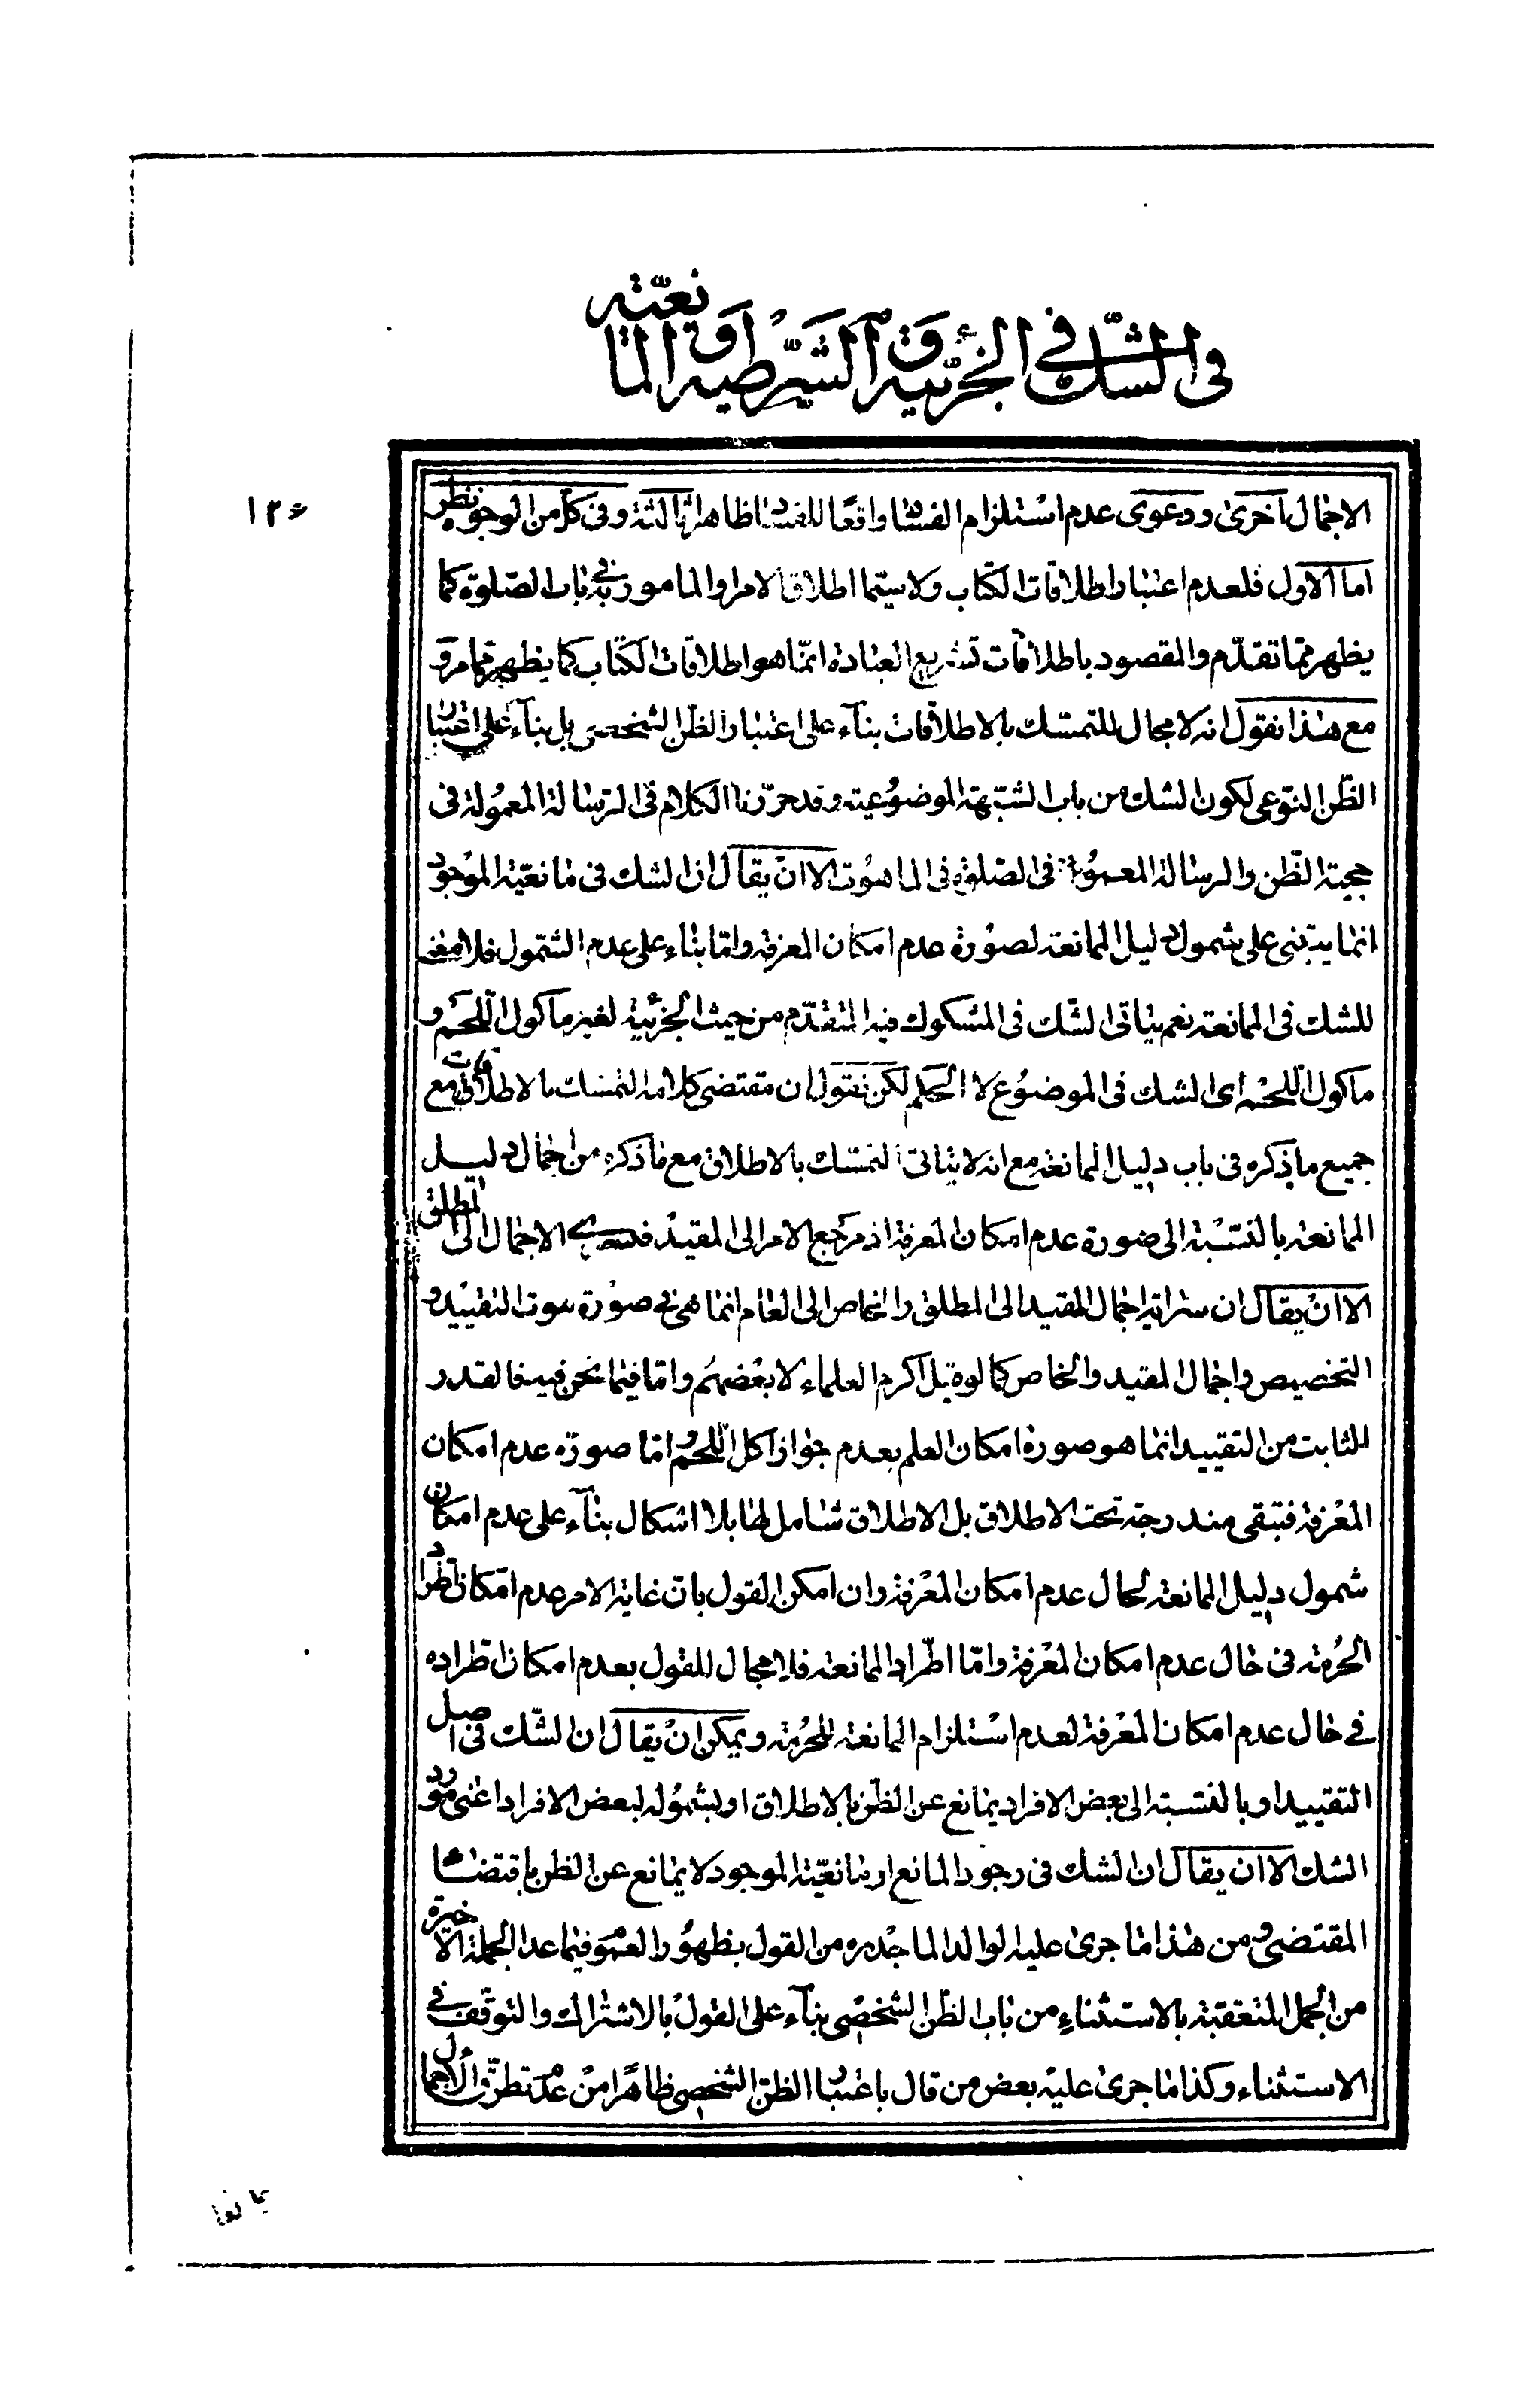 في الشك في الجزئية او الشرطية او المانعيّة
١٢۶
الاجمال اخرى ودعوى عدم استلزام الفساد واقعًا للفساد ظاهرا ثالثة وفى كل من الوجوه نظر
اما الاول فلعدم اعتبار اطلاقات الكتاب ولا سيّما اطلاق الامر والمامور به في باب الصّلوة كما
يظهر ممّا تقدّم والمقصود باطلاقات تشريع العبادة انمّا هو اطلاقات الكتاب كما يظهر ممّا مرّ و
مع هذا نقول انه لا مجال للتمسّك بالاطلاقات بناء على اعتبار الظنّ الشخصى بل بناء على اعتبار
الظّن النّوعى لكون الشك من باب الشبهة الموضوعيّة وقد حرّرنا الكلام فى الرسالة المعمولة فى
حجية الظّن والرسالة المعمولة فى الصلوة فى الماهوت الا ان يقال ان الشك فى مانعيّة الموجود
انما يبتنى على شمول دليل الممانعة لصورة عدم امكان المعرفة وامّا بناء على عدم الشّمول فلا معنى
للشك فى الممانعة نعم يتاتى الشّك فى المشكوك فيه المتقدّم من حيث الجزئية لغير ماكول اللحم و
ماكول اللحم اى الشك فى الموضوع لا الحكم لكن نقول ان مقتضى كلامه التمسّك بالاطلاقات مع
جميع ما ذكره فى باب دليل الممانعة مع انه لا يتاتى التمسّك بالاطلاق مع ما ذكره من اجمال دليل
الممانعة بالنسبة الى صورة عدم امكان المعرفة اذ مرجع الامر الى المقيد فيسرى الاجمال الى المطلق
الا ان يقال ان سراية اجمال المقيد الى المطلق والخاص الى العام انما هى في صورة ثبوت التقييد و
التخصيص واجمال المقيد والخاص كما لو قيل اكرم العلماء لا بعضهم وامّا فيما نحن فيه فالقدر
الثابت من التقييد انما هو صورة امكان العلم بعدم جواز اكل اللحم امّا صورة عدم امكان
المعرفة فتبقى مندرجة تحت الاطلاق بل الاطلاق شامل لها بلا اشكال بناء على عدم امكان
شمول دليل الممانعة لحال عدم امكان المعرفة وان امكن القول بانّ غاية الامر عدم امكان اطراد
الحرمة فى حال عدم امكان المعرفة وامّا اطّراد الممانعة فلا مجال للقول بعدم امكان اطّراده
في حال عدم امكان المعرفة لعدم استلزام الممانعة للحرمة ويمكن ان يقال ان الشّك فى اصل
التقييد او بالنسبة الى بعض الافراد يمانع عن الظّن بالاطلاق او بشموله لبعض الافراد اعنى مورد
الشك الا ان يقال ان الشك فى وجود المانع او مانعيّة الموجود لا يمانع عن الظن باقتضاء
المقتضى ومن هذا ما جرى عليه الوالد الماجد ره من القول بظهور العموم فيما عدا الجملة الاخيرة
من الجمل المتعقبة بالاستثناء من باب الظّن الشخصى بناء على القول بالاشتراك والتوقّف في
الاستثناء وكذا ما جرى عليه بعض من قال باعتبار الظنّ الشخصى ظاهرًا من عدم تطرّق الاجمال